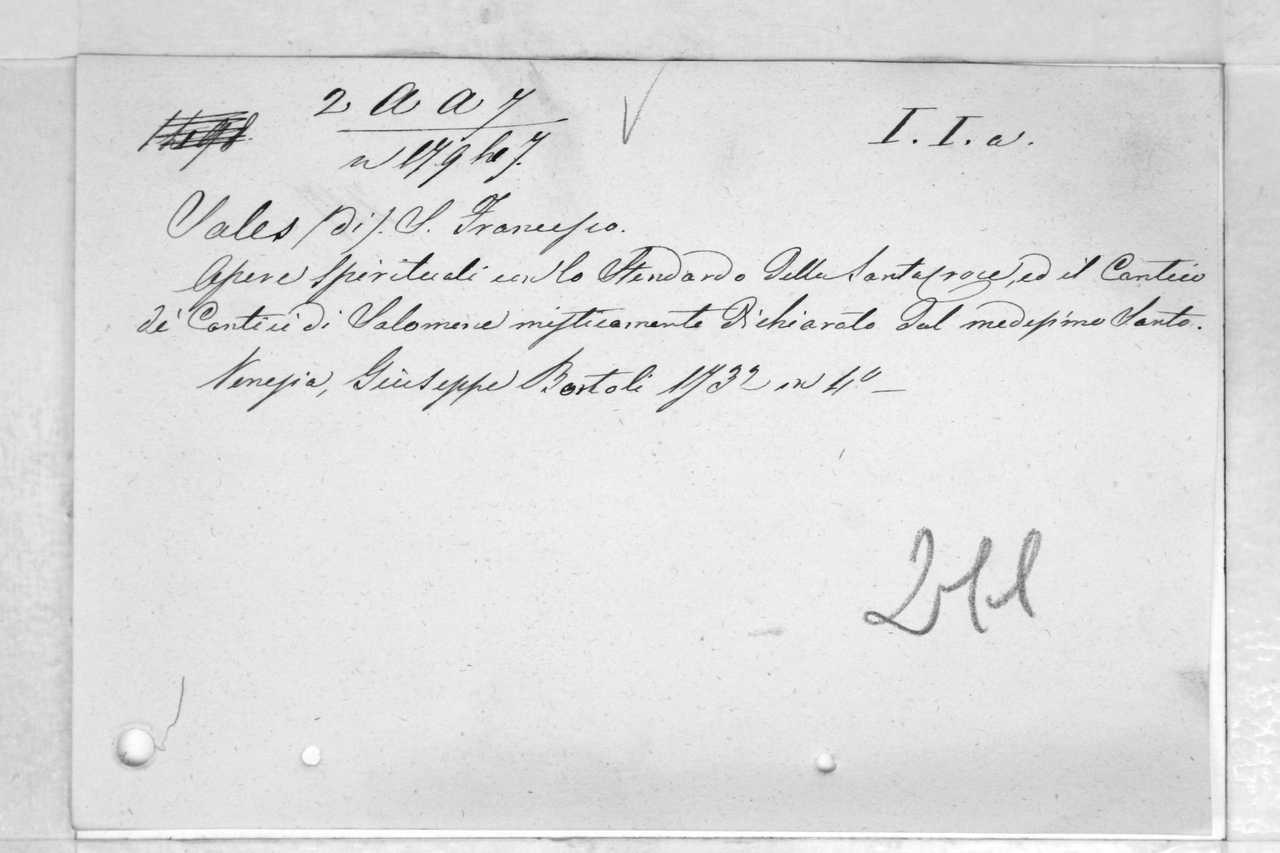 2 a a 7
I. I. a.
Sales (di). S. Francesco.
Opere Spirituali con lo Stendardo della Santa Croce, ed il Cantico
de' Cantici di Salomone misticamente dichiarato dal medesimo Santo.
Venezia, Giuseppe Bortoli 1732 in 4º